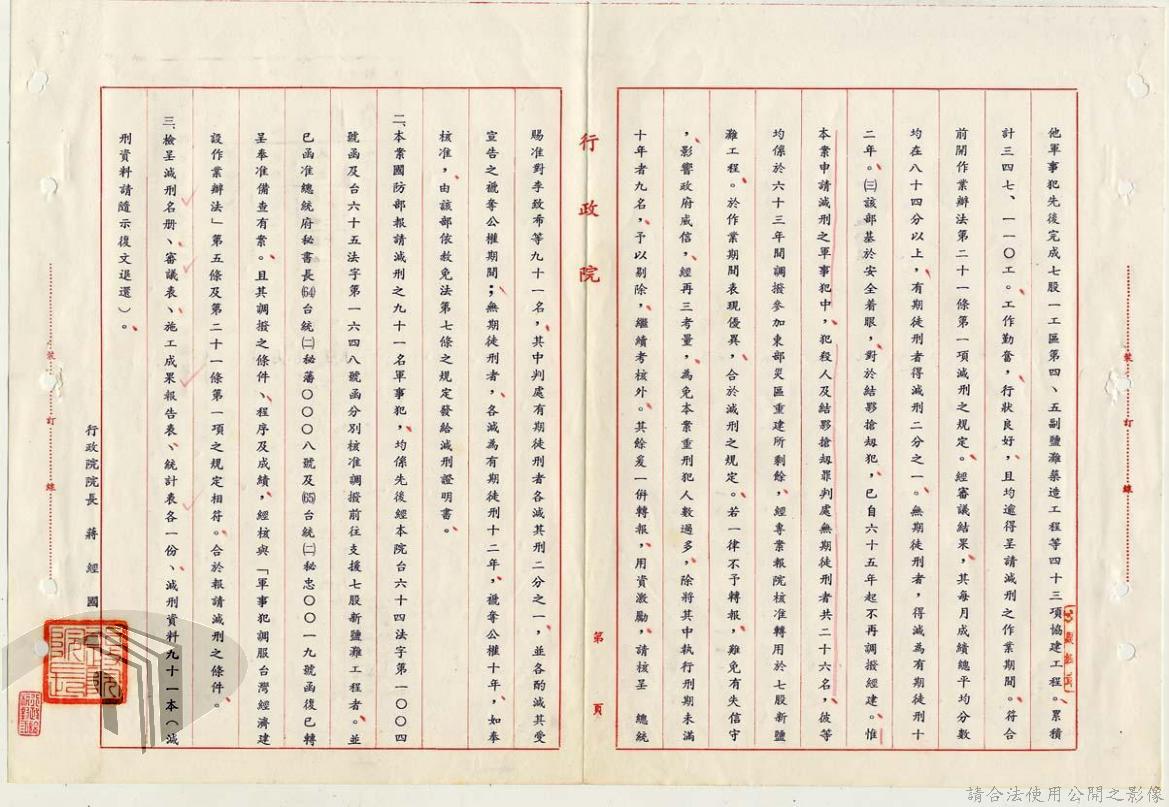 他軍事犯先後完成七股一工區第四、五副鹽灘築造工程等四十三項協建工程。累積
計三四七、一一〇工。工作勤奮，行狀良好，且均逾得呈請減刑之作業期間。符合
前開作業辦法第二十一條第一項減刑之規定。經審議結果，其每月成績總平均分數
均在八十四分以上，有期徒刑者得減刑二分之一。無期徒刑者，得減為有期徒刑十
二年。㈢該部基於安全着眼，對於結夥搶刧犯，已自六十五年起不再調撥經建。惟
本案申請減刑之軍事犯中，犯殺人及結夥搶刧罪判處無期徒刑者共二十六名，彼等
均係於六十三年間調撥參加東部災區重建所剩餘，經專案報院核准轉用於七股新鹽
灘工程。於作業期間表現優異，合於減刑之規定。若一律不予轉報，難免有失信守
，影響政府威信，經再三考量，為免本案重刑犯人數過多，除將其中執行刑期未滿
十年者九名，予以剔除，繼續考核外。其餘爰一併轉報，用資激勵，請核呈　總統
行政院
第　頁
賜准對李致布等九十一名，其中判處有期徒刑者各減其刑二分之一，並各酌減其受
宣告之褫奪公權期間；無期徒刑者，各減為有期徒刑十二年，褫奪公權十年，如奉
核准，由該部依赦免法第七條之規定發給減刑證明書。
二、本案國防部報請減刑之九十一名軍事犯，均係先後經本院台六十四法字第一〇〇四
號函及台六十五法字第一六四八號函分別核准調撥前往支援七股新鹽灘工程者。並
已函准總統府秘書長(64)台統㈡秘藩〇〇〇八號及(65)台統㈡秘忠〇〇一九號函復已轉
呈奉准備查有案。且其調撥之條件、程序及成績，經核與「軍事犯調服台灣經濟建
設作業辦法」第五條及第二十一條第一項之規定相符。合於報請減刑之條件。
三、檢呈減刑名册、審議表、施工成果報告表、統計表各一份、減刑資料九十一本（減
刑資料請隨示復文退還）。
行政院院長　蔣　經　國
裝　訂　線
裝　訂　線
行政院院長
請合法使用公開之影像